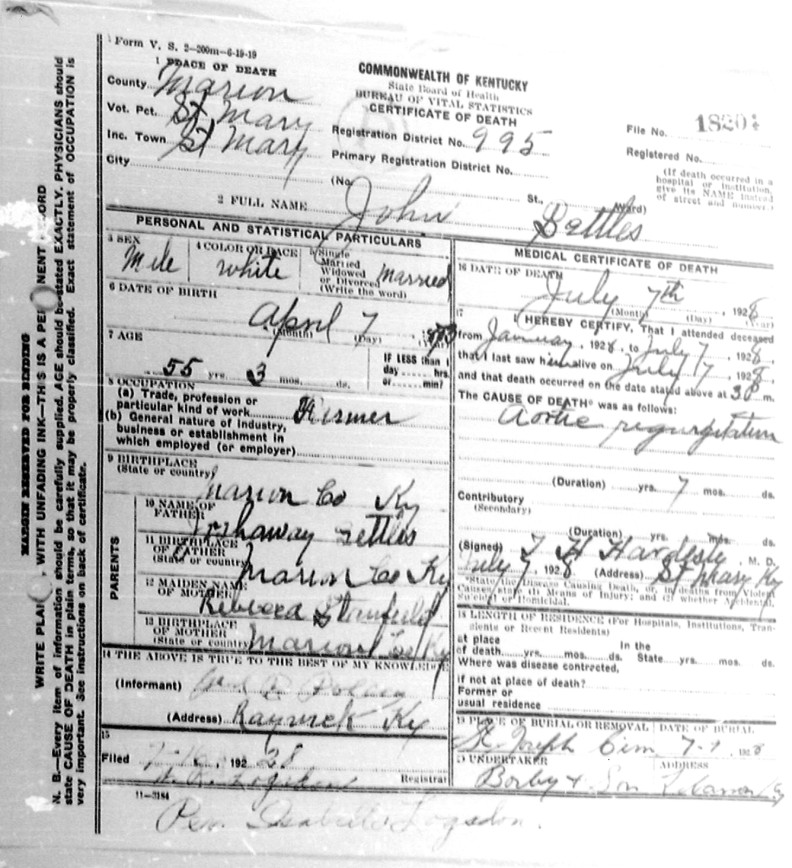 Form V. S. 2—200m—6-19-19
1 PLACE OF DEATH
County Marion
Vot. Pct. St Mary
Inc. Town St Mary
City
COMMONWEALTH OF KENTUCKY
State Board of Health
BUREAU OF VITAL STATISTICS
CERTIFICATE OF DEATH
Registration District No. 995
Primary Registration District No.
(No. St., Ward)
File No. 18204
Registered No.
(If death occurred in a
hospital or institution,
give its NAME instead
of street and number.)
2 FULL NAME John Settles
PERSONAL AND STATISTICAL PARTICULARS
3 SEX
Male
4 COLOR OR RACE
white
5 Single
Married
Widowed
or Divorced
(Write the word)
Married
6 DATE OF BIRTH
April 7
(Month) (Day) (Year)
7 AGE
55 yrs. 3 mos. ds.
IF LESS than 1
day hrs.
or min?
8 OCCUPATION
(a) Trade, profession or
particular kind of work Farmer
(b) General nature of industry,
business or establishment in
which employed (or employer)
9 BIRTHPLACE
(State or country)
Marion Co Ky
PARENTS
10 NAME OF
FATHER
Settles
11 BIRTHPLACE
OF FATHER
(State or country)
Marion Co Ky
12 MAIDEN NAME
OF MOTHER
Rebecca
13 BIRTHPLACE
OF MOTHER
(State or country)
Marion Co Ky
14 THE ABOVE IS TRUE TO THE BEST OF MY KNOWLEDGE
(Informant)
(Address) Raywick Ky
15
Filed 192 28
Logsdon Registrar
11—3184
Per. Isabelle Logsdon.
MEDICAL CERTIFICATE OF DEATH
16 DATE OF DEATH
July 7th, 1928
(Month) (Day) (Year)
17 I HEREBY CERTIFY, That I attended deceased
from January, 1928, to July 7, 1928,
that I last saw him alive on July 7, 1928,
and that death occurred on the date stated above at m.
The CAUSE OF DEATH* was as follows:
Aortic regurgitation
(Duration) yrs. 7 mos. ds.
Contributory
(Secondary)
(Duration) yrs. mos. ds.
(Signed) T H Hardesty, M. D.
July 7 1928 (Address) St Mary Ky
*State the Disease Causing Death, or, in deaths from Violent
Causes, state (1) Means of Injury; and (2) whether Accidental,
Suicidal or Homicidal.
18 LENGTH OF RESIDENCE (For Hospitals, Institutions, Tran-
sients or Recent Residents)
at place In the
of death yrs. mos. ds. State yrs. mos. ds.
Where was disease contracted,
if not at place of death?
Former or
usual residence
19 PLACE OF BURIAL OR REMOVAL
St Joseph Cem
DATE OF BURIAL
1928
20 UNDERTAKER
& Son
ADDRESS
Lebanon Ky
MARGIN RESERVED FOR BINDING
WRITE PLAINLY, WITH UNFADING INK—THIS IS A PERMANENT RECORD
N. B.—Every item of information should be carefully supplied. AGE should be stated EXACTLY. PHYSICIANS should
state CAUSE OF DEATH in plain terms, so that it may be properly classified. Exact statement of OCCUPATION is
very important. See instructions on back of certificate.